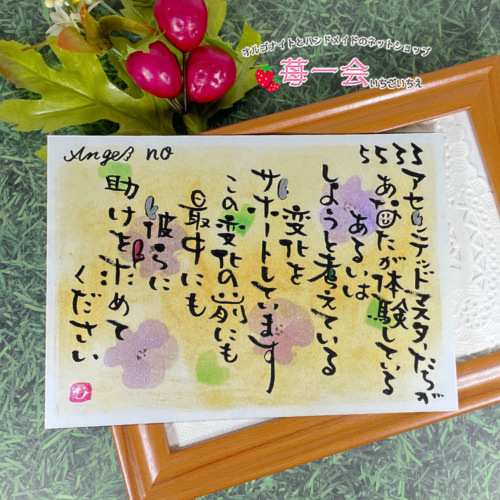 オルゴナイトとハンドメイドのネットショップ
苺一会
いちごいちえ
Angel no
5533
アセンテッドマスターたちが
あなたが体験している
あるいは
しようと考えている
変化を
サポートしています
この変化の前にも
最中にも
彼らに
助けをもとめて
ください